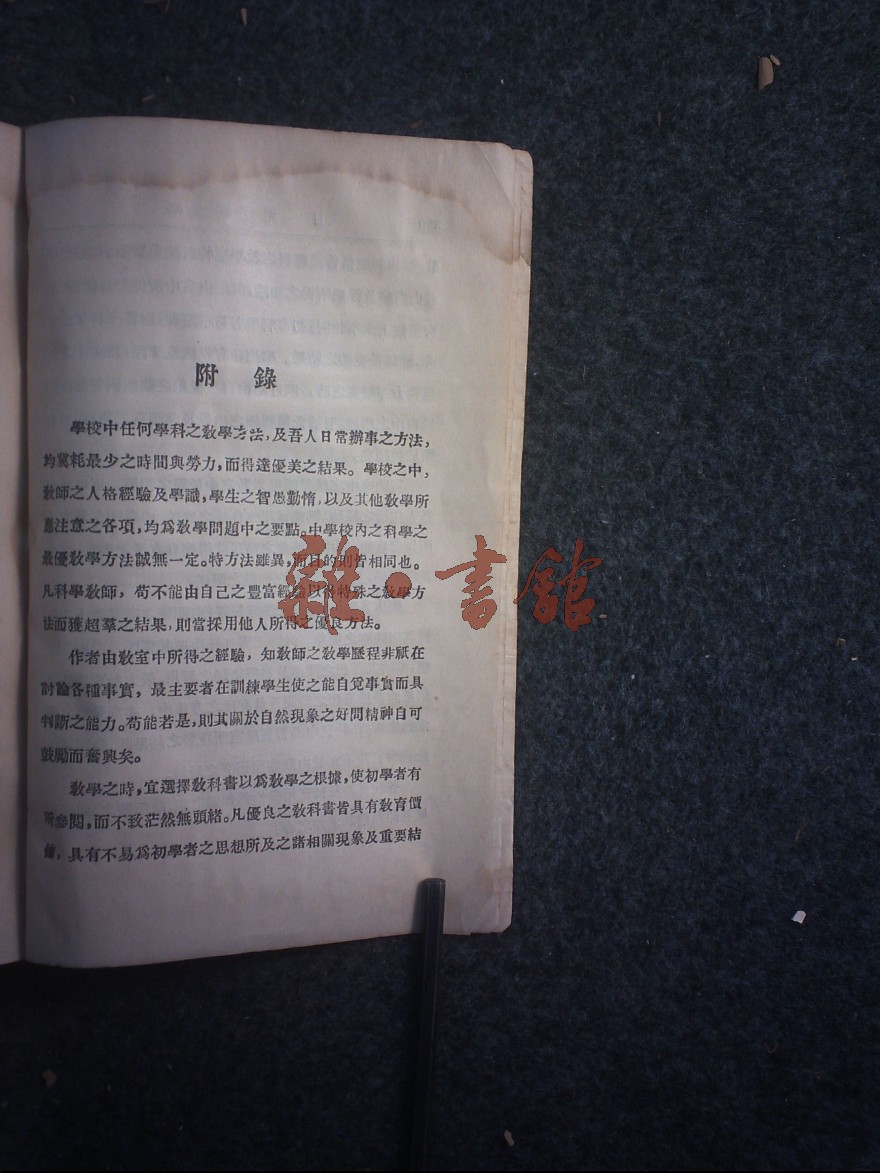 附錄
學校中任何學科之敎學方法,及吾人日常辦事之方法,
均冀耗最少之時間與勞力,而得達優美之結果。學校之中,
敎師之人格經驗及學識,學生之智愚勤惰,以及其他敎學所
應注意之各項,均爲敎學問題中之要點。中學校內之科學之
最優敎學方法誠無一定。特方法雖異,而目的則皆相同也。
凡科學敎師,苟不能由自己之豐富經驗以各特殊之敎學方
法而獲超羣之結果,則當採用他人所得之優良方法。
作者由敎室中所得之經驗,知敎師之敎學歷程非祇在
討論各種事實,最主要者在訓練學生使之能自覓事實而具
判斷之能力。苟能若是,則其關於自然現象之好問精神自可
鼓勵而奮興矣。
敎學之時,宜選擇敎科書以爲敎學之根據,使初學者有
所參閱,而不致茫然無頭緒。凡優良之敎科書皆具有敎育價
值,具有不易爲初學者之思想所及之諸相關現象及重要結
雜·書館